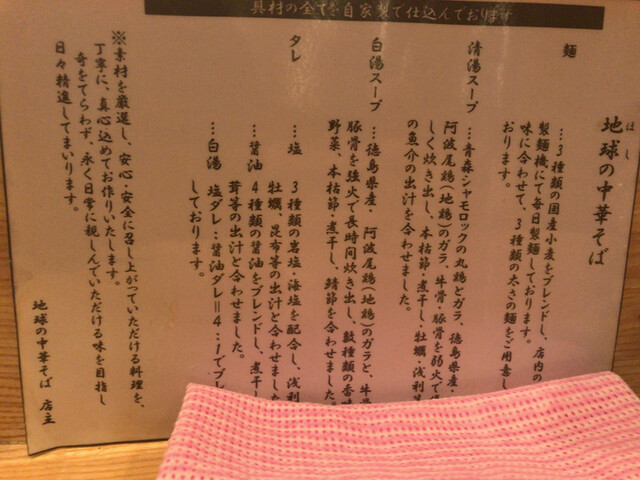 具材の全てを自家製で仕込んでおります
ほし
地球の中華そば
麺
…3種類の国産小麦をブレンドし、店内の
製麺機にて毎日製麺しております。
味に合わせて、3種類の太さの麺をご用意し
おります。
清湯スープ
…青森シャモロックの丸鶏とガラ、徳島県産・
阿波尾鶏(地鶏)のガラ、牛骨・豚骨を弱火で
しく炊き出し、本枯節・煮干し・牡蠣・浅利
の魚介の出汁を合わせました。
白湯スープ
…徳島県産・阿波尾鶏(地鶏)のガラと、牛骨
豚骨を強火で長時間炊き出し、数種類の香味
野菜、本枯節・煮干し、鯖節を合わせました
タレ
…塩 3種類の岩塩・海塩を配合し、浅利
牡蠣、昆布等の出汁と合わせました
…醤油 4種類の醤油をブレンドし、煮干し
茸等の出汁と合わせました。
…白湯 塩ダレ:醤油ダレ=4:1でブレ
しております。
※素材を厳選し、安心・安全に召し上がっていただける料理を、
丁寧に、真心込めてお作りいたします。
奇をてらわず、永く日常に親しんでいただける味を目指し
日々精進してまいります。
地球の中華そば 店主